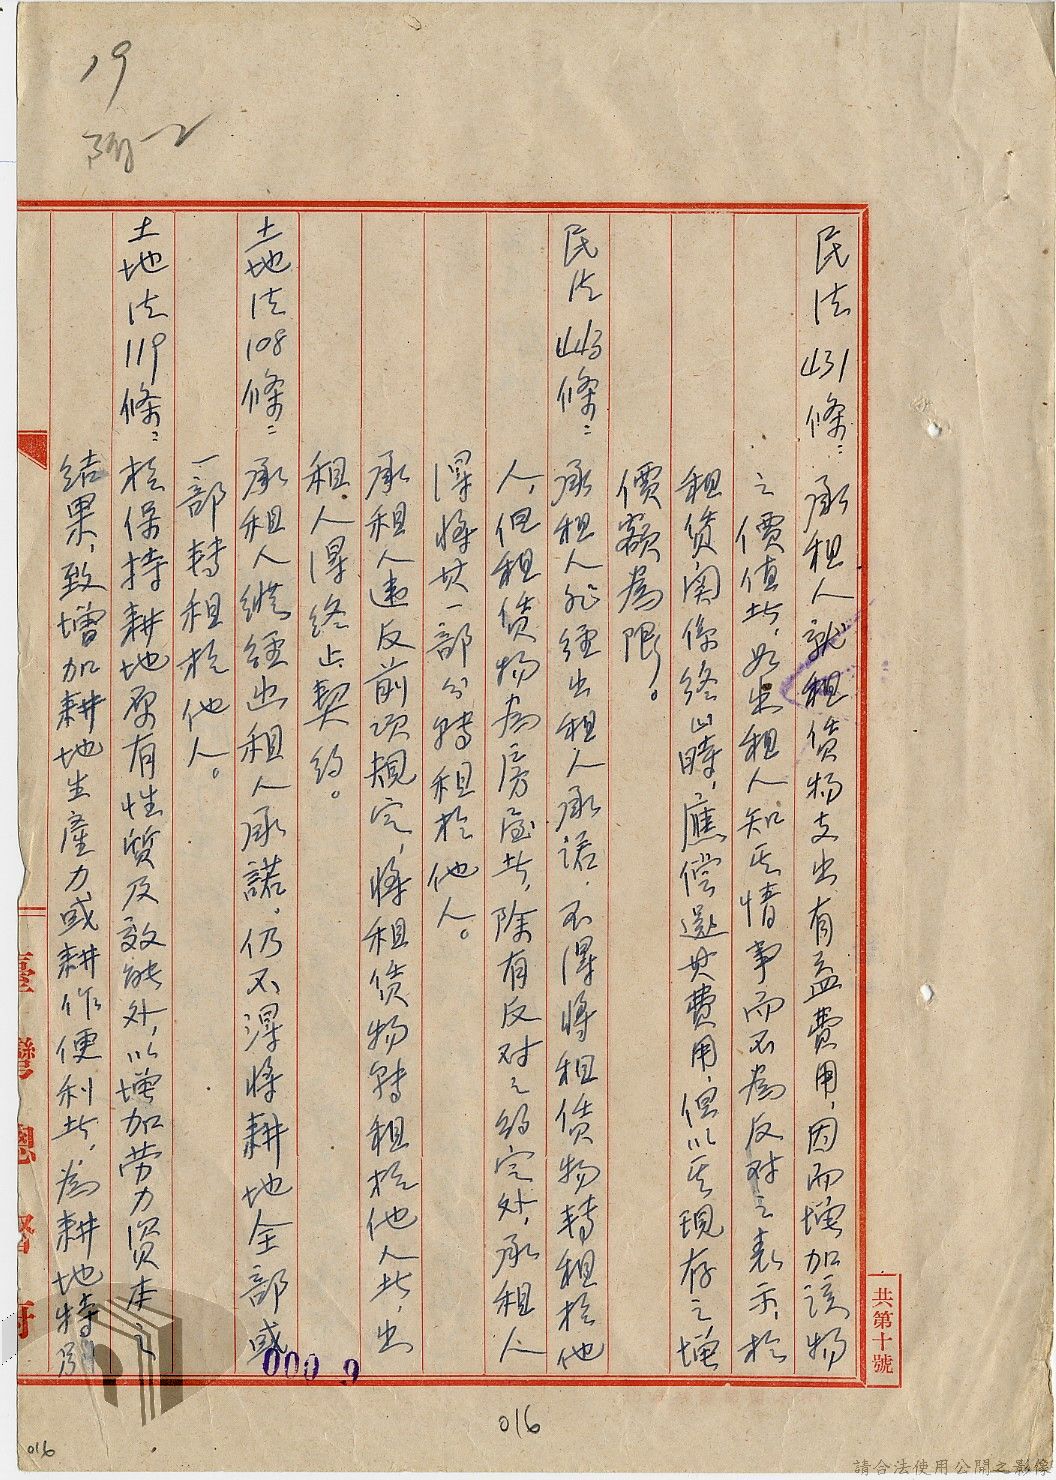 19
附一2
民法431條：承租人就租賃物支出有益費用，因而增加該物
之價值者，如出租人知其情事而不為反对之表示，於
租賃関係終止時，應償還其費用，但以其現存之增
價額為限。
民法443條：承租人非經出租人承诺，不得將租賃物轉租於他
人，但租賃物為房屋者，除有反对之約定外，承租人
得將其一部分轉租於他人。
承租人違反前項規定，將租賃物轉租於他人者，出
租人得終止契約。
土地法108條：承租人縱經出租人承諾，仍不得將耕地全部或
一部轉租於他人。
土地法119條：於保持耕地原有性質及效能外，以增加劳力資本之
結果，致增加耕地生產力或耕作便利者，為耕地特別
臺灣總督府
共第十號
000 9
016
016
請合法使用公開之影像